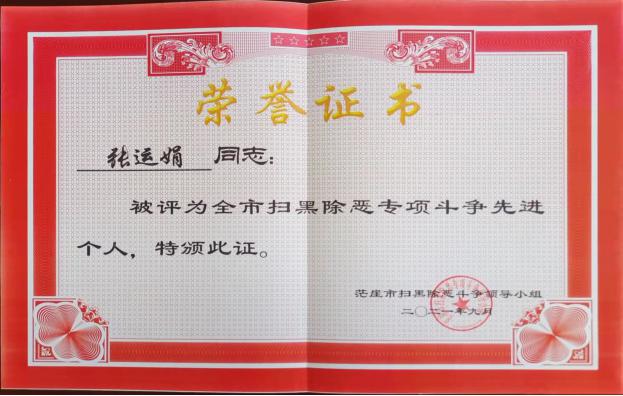 荣誉证书
张运娟 同志：
被评为全市扫黑除恶专项斗争先进
个人，特颁此证。
茫崖市扫黑除恶斗争领导小组
二〇二一年九月